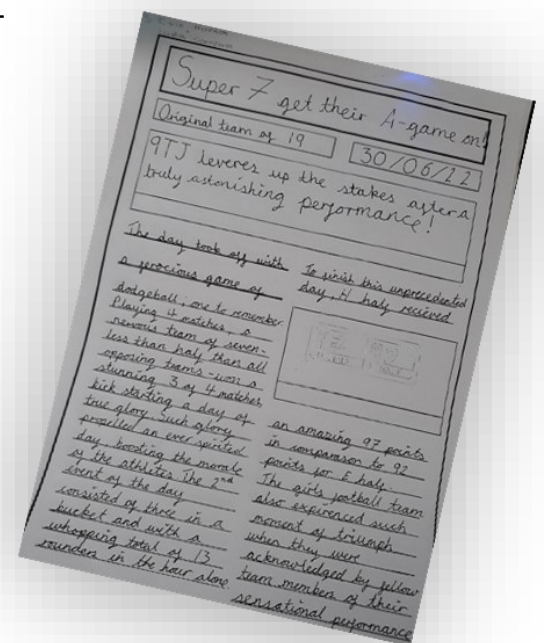 Super 7 get their A-game on!
Original team of 19
30/06/22
9TJ leveres up the stakes after a
truly astonishing performance!
The day took off with
a ferocious game of
dodgeball; one to remember.
Playing 4 matches, a
nervous team of seven-
less than half than all
opposing teams - won a
stunning 3 of 4 matches,
kick starting a day of
true glory. Such glory
propelled an ever spirited
day, boosting the morale
of the athletes. The 2nd
event of the day
consisted of three in a
bucket and with a
whopping total of 13
rounders in the hour alone.
To finish this unprecedented
day, H half recieved
an amazing 97 points
in comparason to 92
points for E half.
The girls football team
also experienced such
moment of triumph
when they were
acknowledged by fellow
team members of their
sensational performance